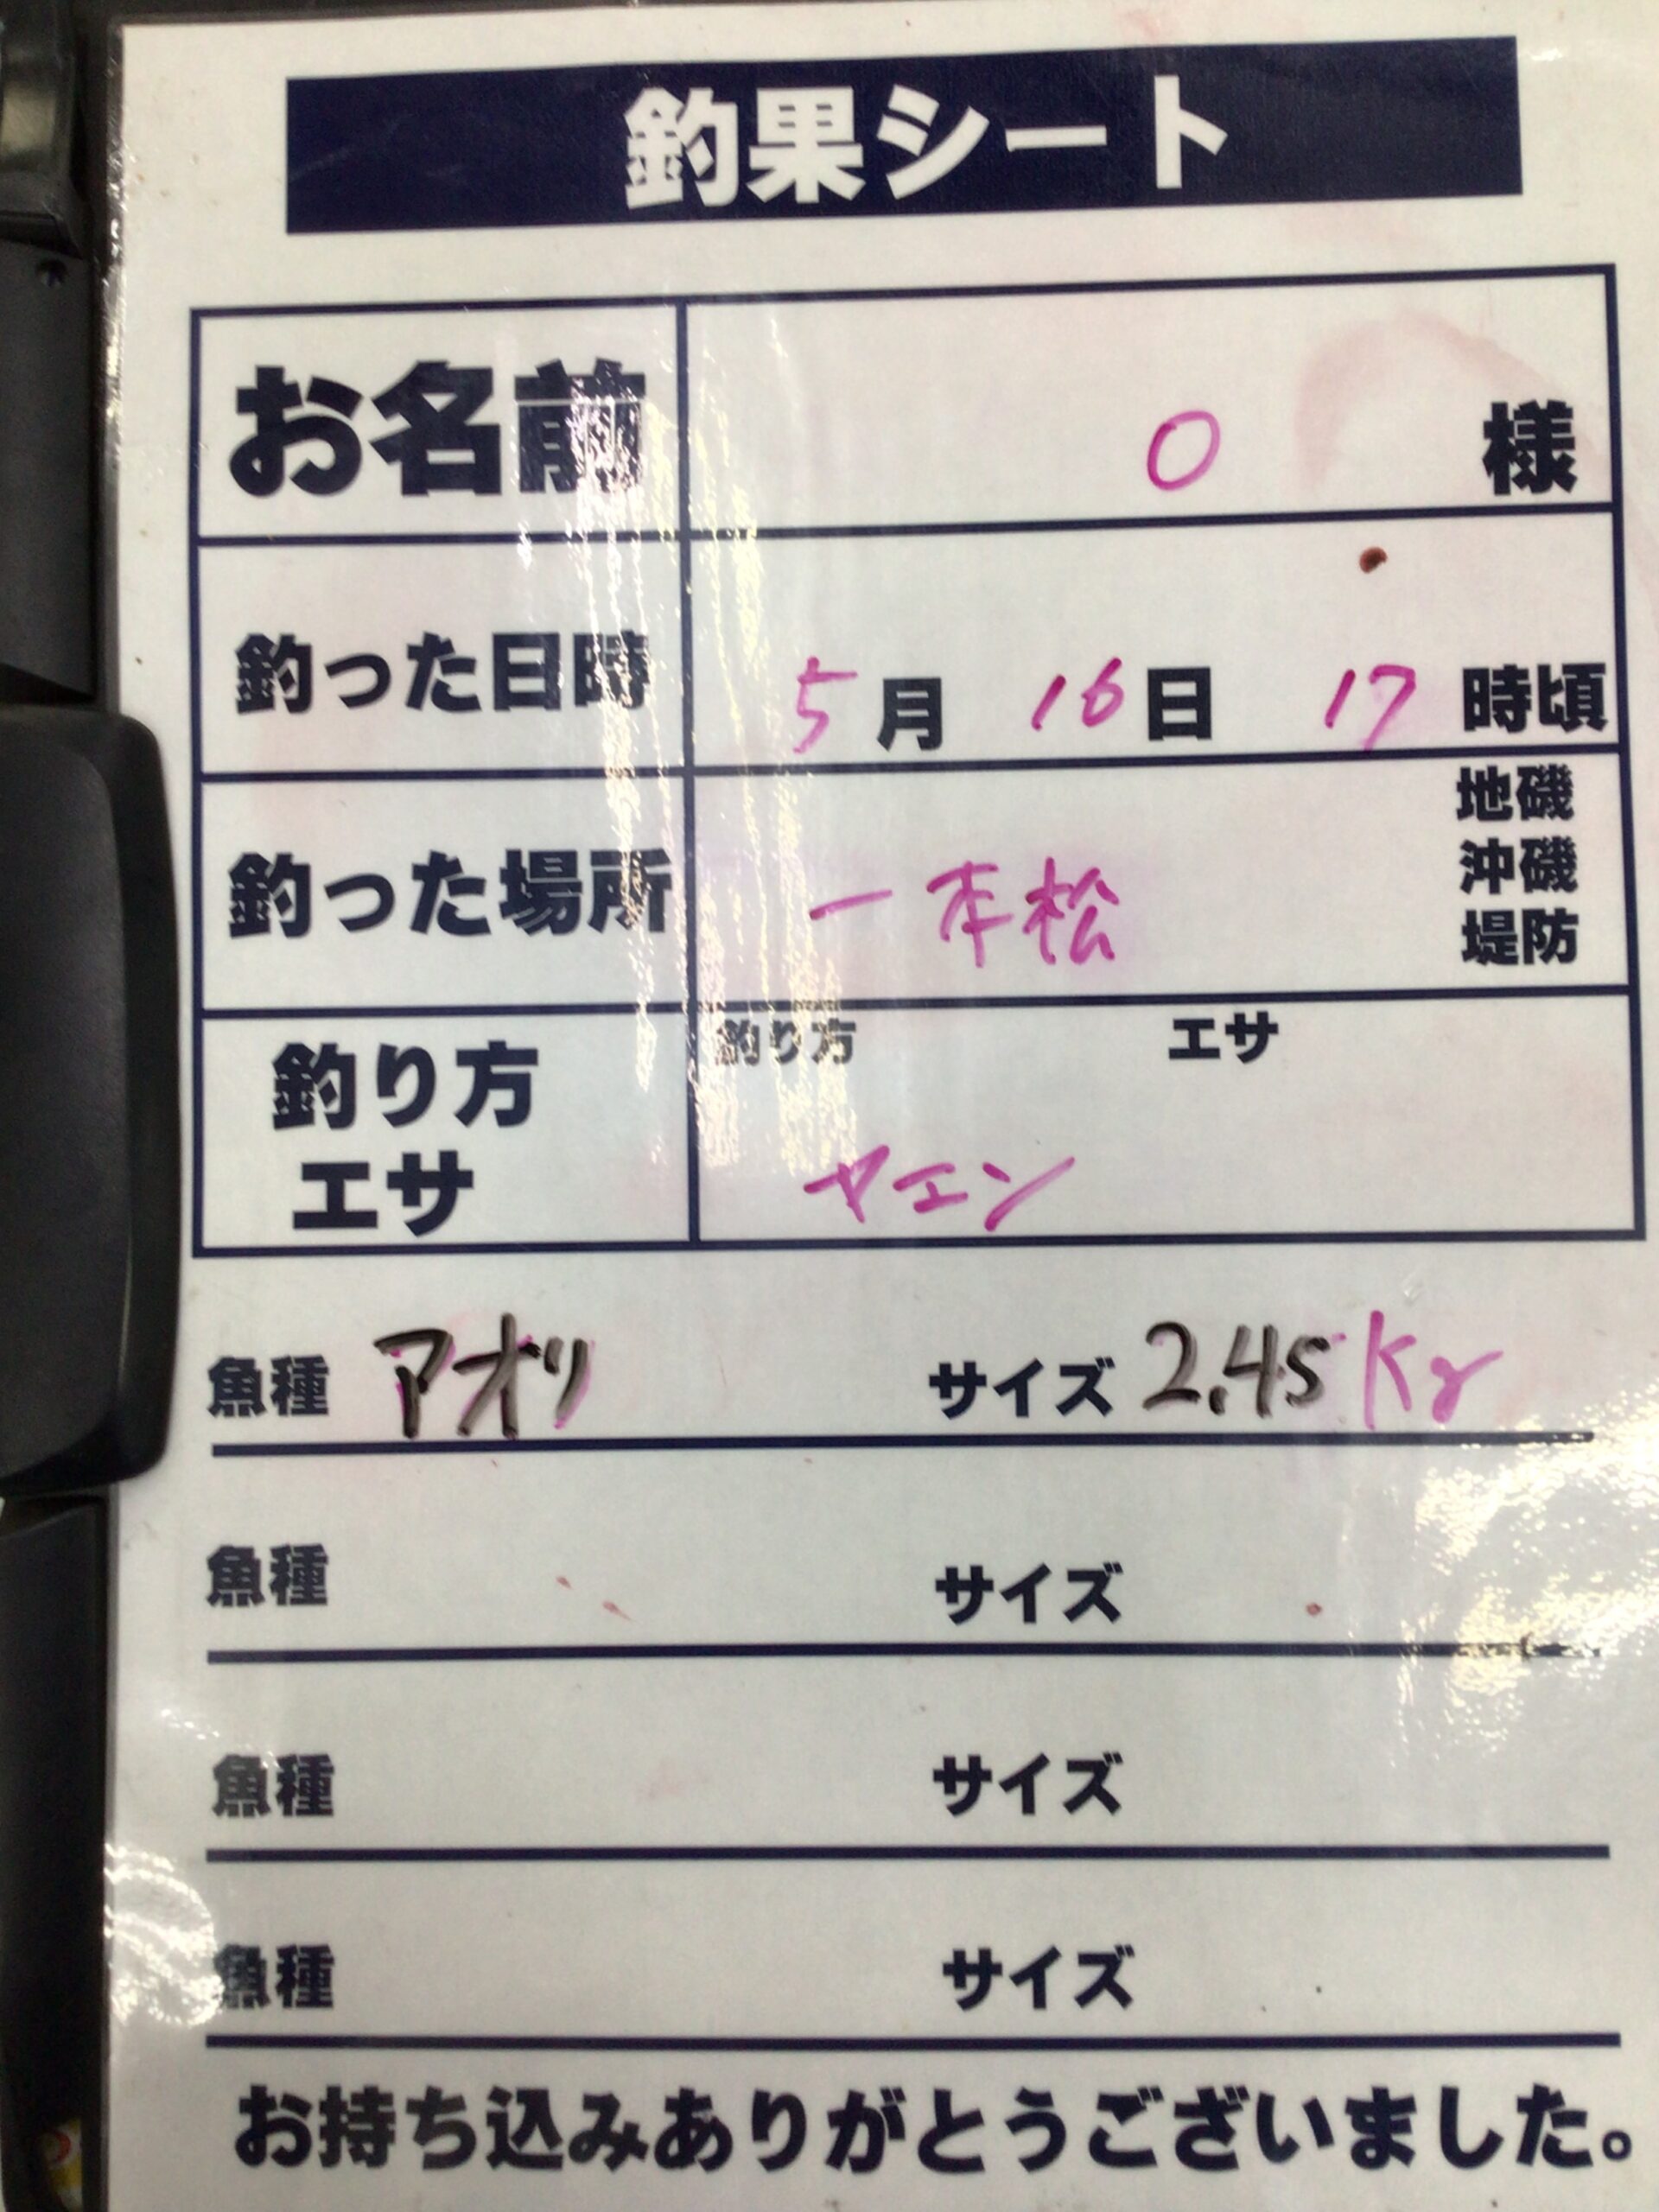 釣果シート
お名前 O 様
釣った日時 5月 16日 17時頃
釣った場所 一本松 地磯 沖磯 堤防
釣り方 エサ
釣り方 エサ
ヤエン
魚種 アオリ サイズ 2.45 Kg
魚種 サイズ
魚種 サイズ
魚種 サイズ
お持ち込みありがとうございました。